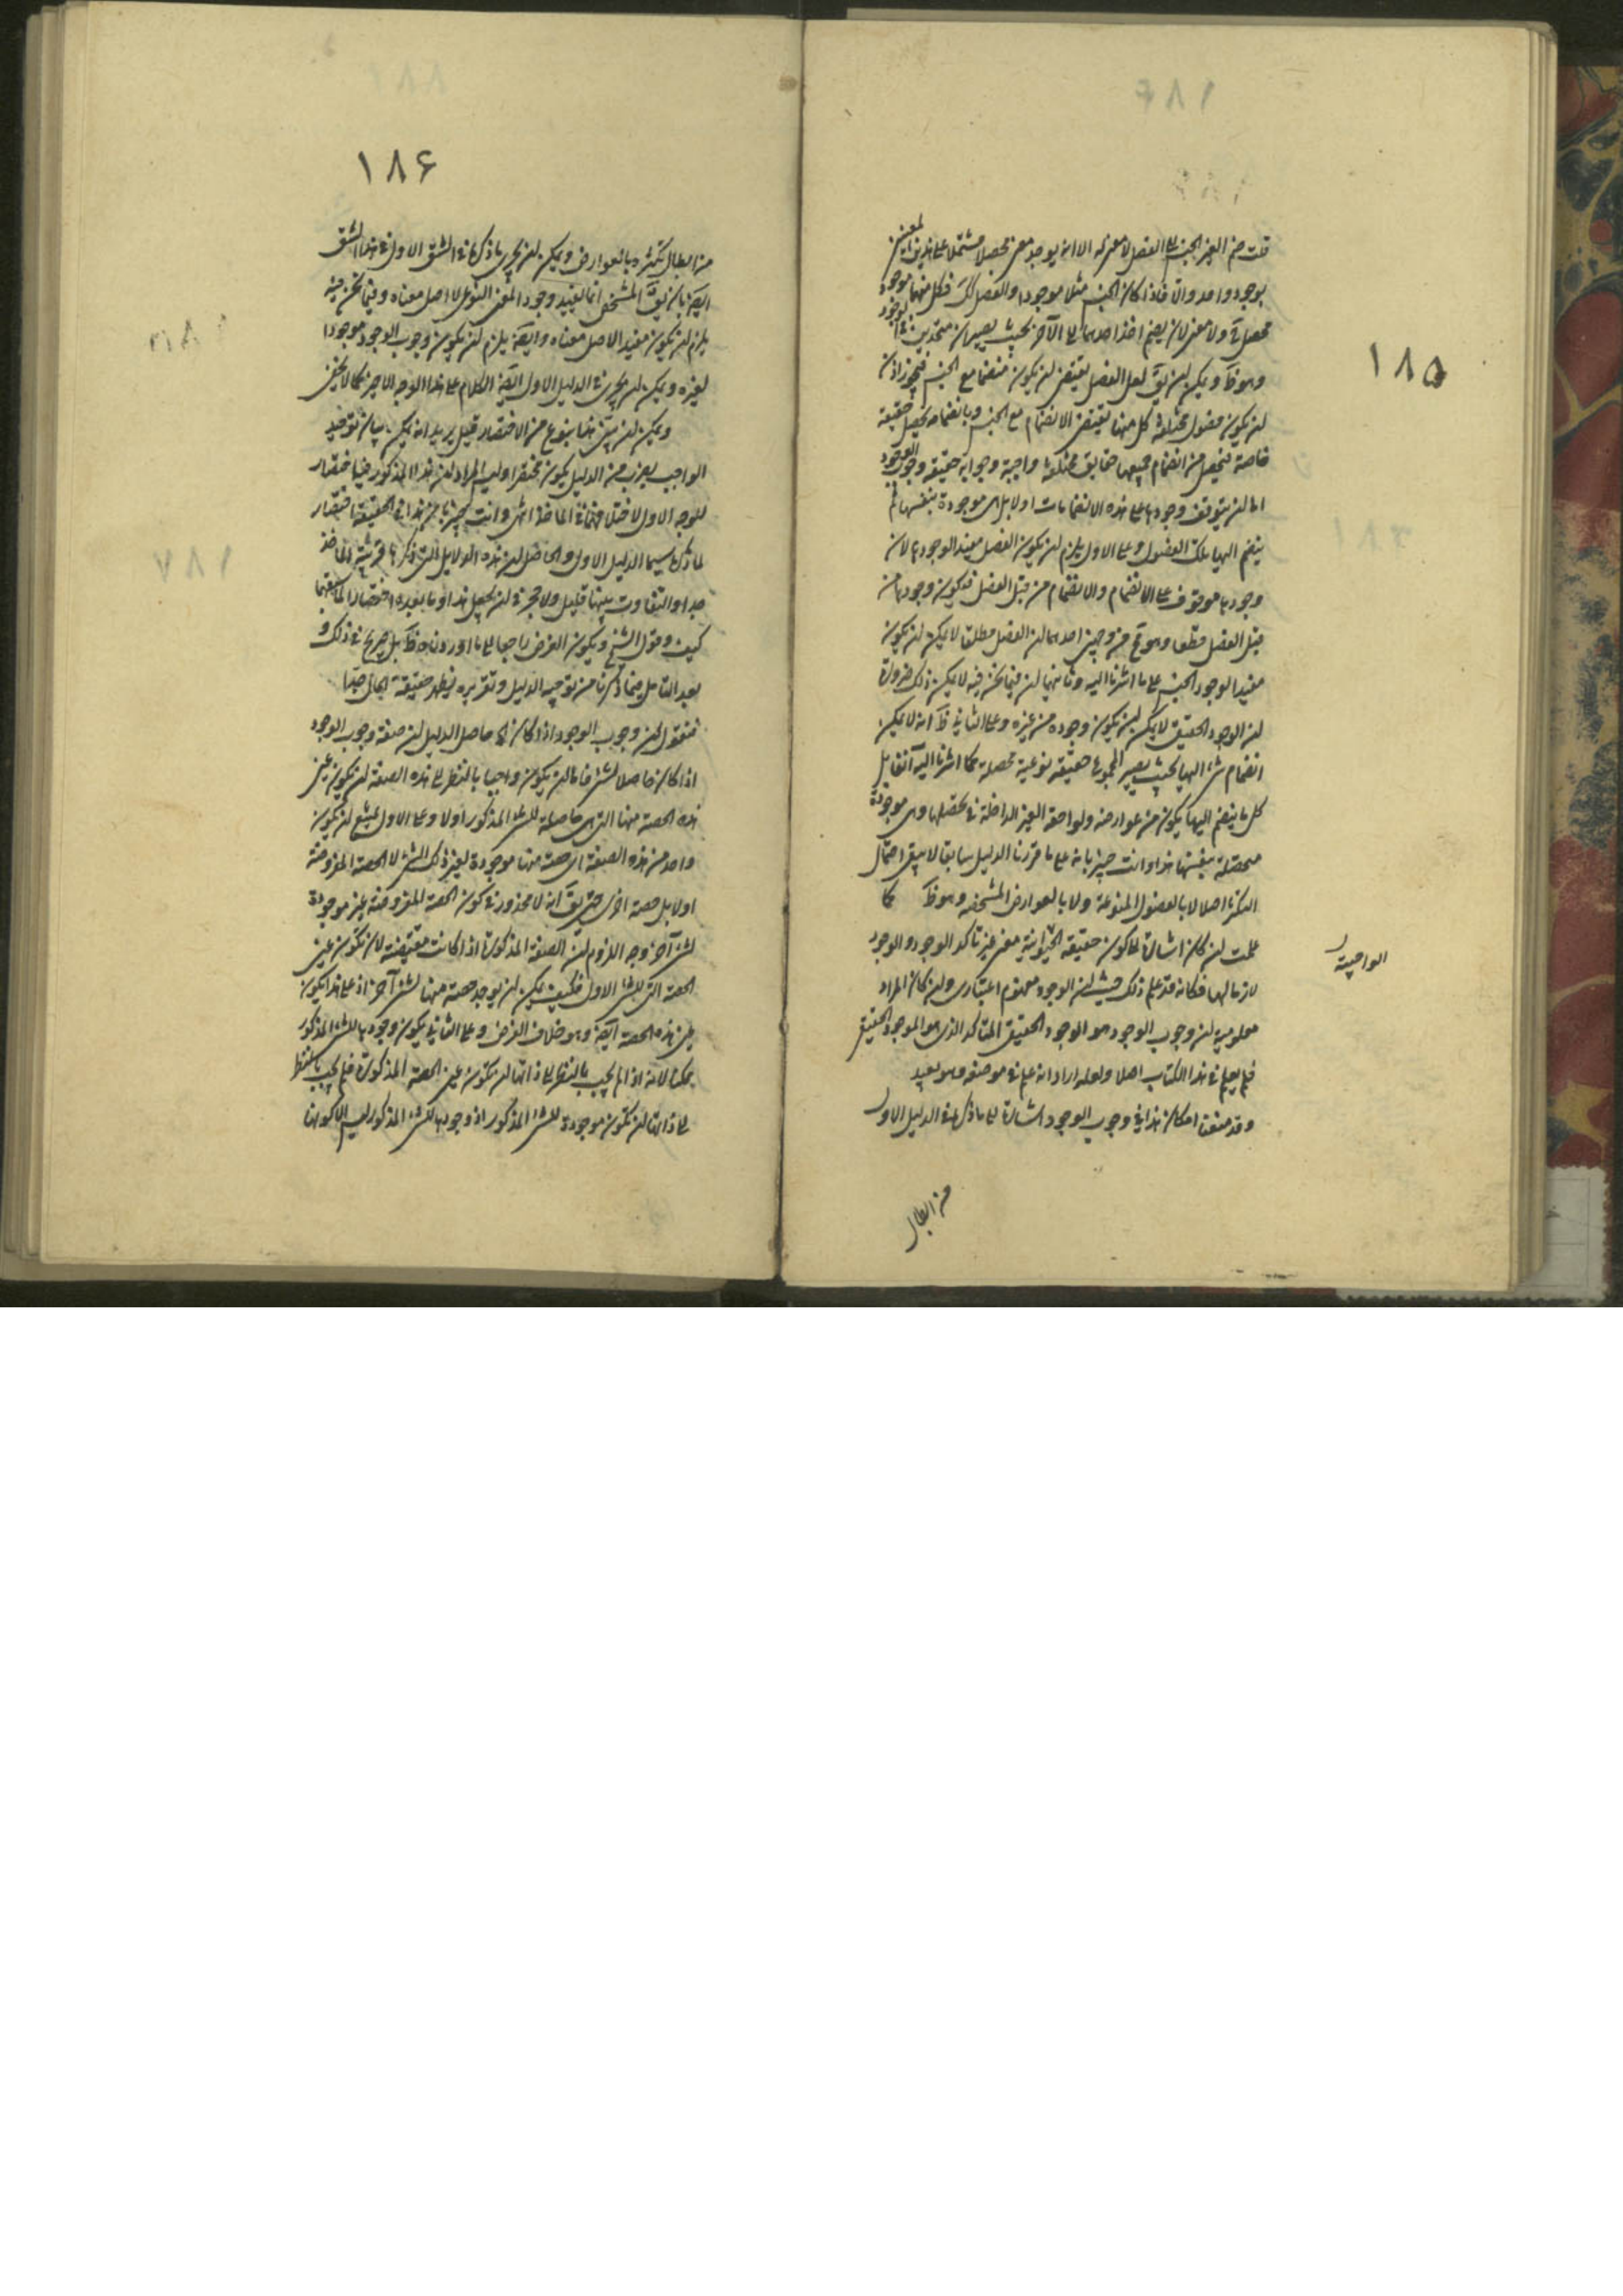 ١٨٥
قلت ضم الغير الجنس الى الفصل لا معنى له الا انه يوجد معنى محصلا مشتملا على هذين المعنيين
بوجود واحد والا فاذا كان الجنس مثلا موجودا والفصل كك فكل منهما موجود
محصل ولا معنى لان يضم اخذ احدهما الى الآخر بحيث يصيران متحدين في الوجود
وهو ظ ويمكن ان يق لعل الفصل يقتضى ان يكون منضما مع الجنس فيجوز اذن
ان يكون فصول مختلفة كل منها يقتضى الانضمام مع الجنس وبانضمامه يحصل حقيقة
خاصة فيحصل من انضمام جميعها حقايق مختلفة واجبة وجوابه حقيقة وجوب الوجود
اما ان يتوقف وجودها على هذه الانضمامات اولا بل هى موجودة بنفسها ثم
ينضم اليها تلك الفصول وعلى الاول يلزم ان يكون الفصل مفيد الوجودها لان
وجودها موقوف على الانضمام والانضمام من قبل الفصل فيكون وجودها من
قبل الفصل قطعا وهو مح من وجهين احدهما ان الفصل مطلقا لا يمكن ان يكون
مفيد الوجود الجنس على ما اشرنا اليه وثانيهما ان فيما نحن فيه لا يمكن ذلك ضرورة
ان الوجود الحقيقى لا يمكن ان يكون وجوده من غيره وعلى الثانى ظ انه لا يمكن
انضمام شئ اليها بحيث يصير المجموع حقيقة نوعية محصلة كما اشرنا اليه آنفا بل
كل ما ينضم اليها يكون من عوارضه ولواحقه الغير الداخلة فى تحصلها وهى موجودة
متحصلة بنفسها هذا وانت خبير بانه على ما قررنا الدليل سابقا لا يبقى احتمال
التكثر اصلا لا بالفصول المنوعة ولا بالعوارض المشخصه وهو ظ كما
علمت ان كان اشارة الى كون حقيقة الحيوانية معنى غير تاكد الوجود والوجود
لازما لها فكانه قد علم ذلك حيث ان الوجود مفهوم اعتبارى وان كان المراد
معلومية ان وجوب الوجود هو الوجود الحقيقى المتاكد الذى هو الموجود الحقيقى
فلم يعلم فى هذا الكتاب اصلا ولعله اراد انه علم فى موضعه وهو بعيد
وقد منعنا امكان هذا فى وجوب الوجود اشارة الى ما ذكره فى الدليل الاول
الواجبية
من ابطال
١٨۶
من ابطال تكثره بالعوارض ويمكن ان يجرى ما ذكرنا فى الشق الاول فى هذا الشق
ايضا بان يق المشخص انما يفيد وجود المعنى النوعى لا اصل معناه وفيما نحن فيه
يلزم ان يكون مفيد الاصل معناه وايضا يلزم ان يكون وجوب الوجود موجودا
لغيره ويمكن ان يجرى فى الدليل الاول ايضا الكلام على هذا الوجه الاخير كما لا يخفى
ويمكن ان يتبين هذا بنوع من الاختصار قيل يريد انه يمكن بيان توحيد
الواجب بضرب من الدليل يكون مختصرا وليس المراد ان هذا المذكور فيها اختصار
للوجه الاول لاختلافهما فى الماخذ انتهى وانت خبير بان هذا فى الحقيقة اختصار
لما ذكره سيما الدليل الاول والحاصل ان هذه الدلايل التى ذكرها قريبة الماخذ
جدا والتفاوت بينها قليل ولا حجر فى ان يجعل هذا وما بعده اختصارا لما سبقهما
كيف وقول الشيخ ويكون الغرض راجعا الى ما اوردناه ظ بل صريح فى ذلك و
بعد التامل فيما ذكرنا من توجيه الدليل وتقريره يظهر حقيقة الحال جيدا
فنقول ان وجوب الوجود اذا كان الخ حاصل الدليل ان صفة وجوب الوجود
اذا كان حاصلا لشئ فاما ان يكون واجبا بالنظر الى هذه الصفة ان يكون عين
هذه الحصة منها التى هى حاصلة للشئ المذكور اولا وعلى الاول يمتنع ان يكون
واحد من هذه الصفة اى حصة منها موجودة لغير ذلك الشئ لا الحصة المفروضة
اولا بل حصة اخرى حتى يق انه لا محذور فى كون الحصة المفروضة غير موجودة
لشئ آخر وجه اللزوم ان الصفة المذكورة اذا كانت مقتضية لان تكون عين
الحصة التى للشئ الاول فكيف يمكن ان يوجد حصة منها لشئ آخر اذ على هذا يكون
عين هذه الحصة ايضا وهو خلاف الفرض وعلى الثانى يكون وجودها للشئ المذكور
ممكنا لانه اذا لم يجب بالنظر الى ذاتها ان تكون عين الحصة المذكورة فلم يجب بالنظر
الى ذاتها ان تكون موجودة للشئ المذكور اذ وجودها للشئ المذكور ليس الا كونها